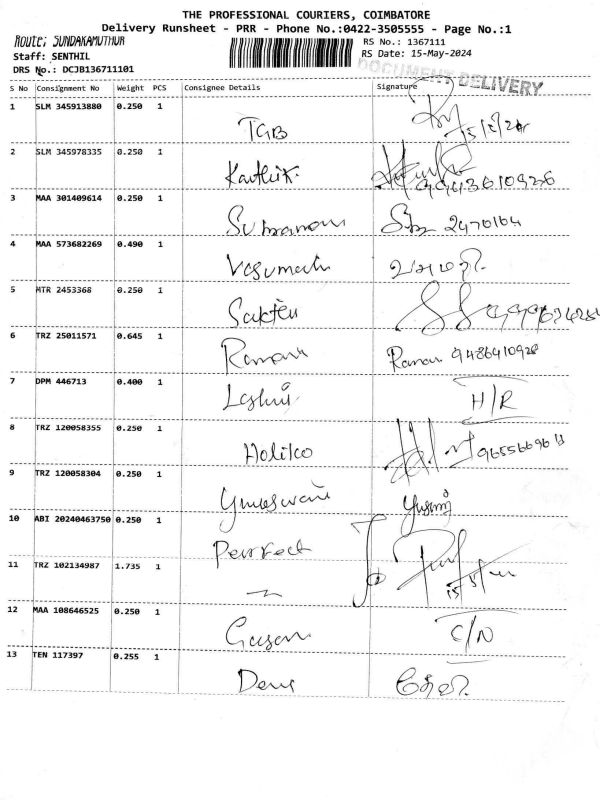 THE PROFESSIONAL COURIERS, COIMBATORE
Delivery Runsheet - PRR - Phone No.:0422-3505555 - Page No.:1
Route; SUNDAKAMUTHUR
RS No.: 1367111
Staff: SENTHIL
RS Date: 15-May-2024
DRS No.: DCJB136711101
DOCUMENT DELIVERY
S No Consignment No Weight PCS Consignee Details Signature
1 SLM 345913880 0.250 1
TGB
2 SLM 345978335 0.250 1
Karthik. 9943610926
3 MAA 301409614 0.250 1
2470164
4 MAA 573682269 0.490 1
Vasumathi வசுமதி.
5 MTR 2453368 0.250 1
Sakthi
6 TRZ 25011571 0.645 1
Raman Raman 9486410928
7 DPM 446713 0.400 1
H/R
8 TRZ 120058355 0.250 1
Holiko
9 TRZ 120058304 0.250 1
10 ABI 20240463750 0.250 1
Perrfect
11 TRZ 102134987 1.735 1
12 MAA 108646525 0.250 1
C/N
13 TEN 117397 0.255 1
தேவி.